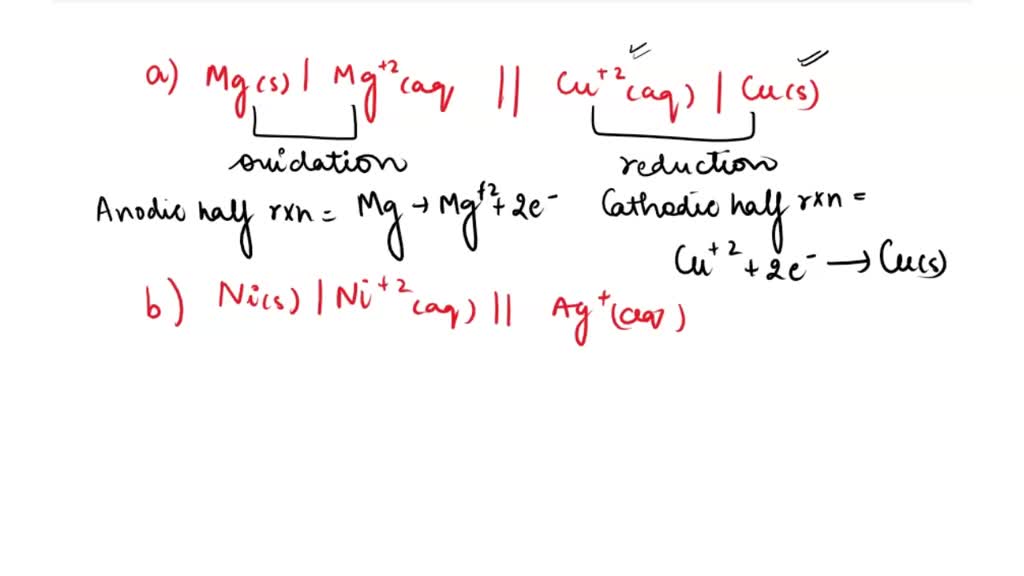 a) Mg(s) | Mg⁺²(aq || Cu⁺²(aq) | Cu(s)
oxidation reduction
Anodic half rxn = Mg → Mg⁺² + 2e⁻ Cathodic half rxn =
Cu⁺² + 2e⁻ → Cu(s)
b) Ni(s) | Ni⁺²(aq) || Ag⁺(aq)